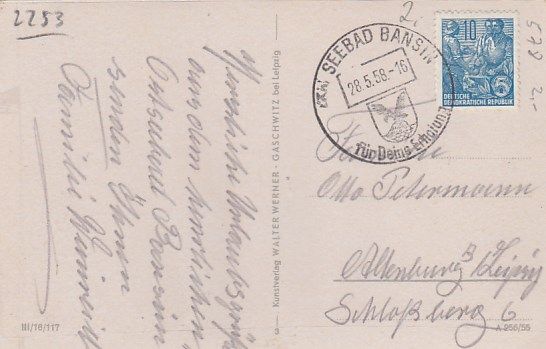 2253
2.
578 2.-
SEEBAD BANSIN
28.5.58.-16
für Deine Erholung
10
DEUTSCHE
DEMOKRATISCHE REPUBLIK
Herzliche Urlaubsgrüße
aus dem herrlichen
Ostseebad Bansin
senden Ihnen
Familie
Kunstverlag WALTER WERNER · GASCHWITZ bei Leipzig
Familie
Otto Petermann
Altenburg b/Leipzig
Schloßberg 6
III/18/117
A 256/55